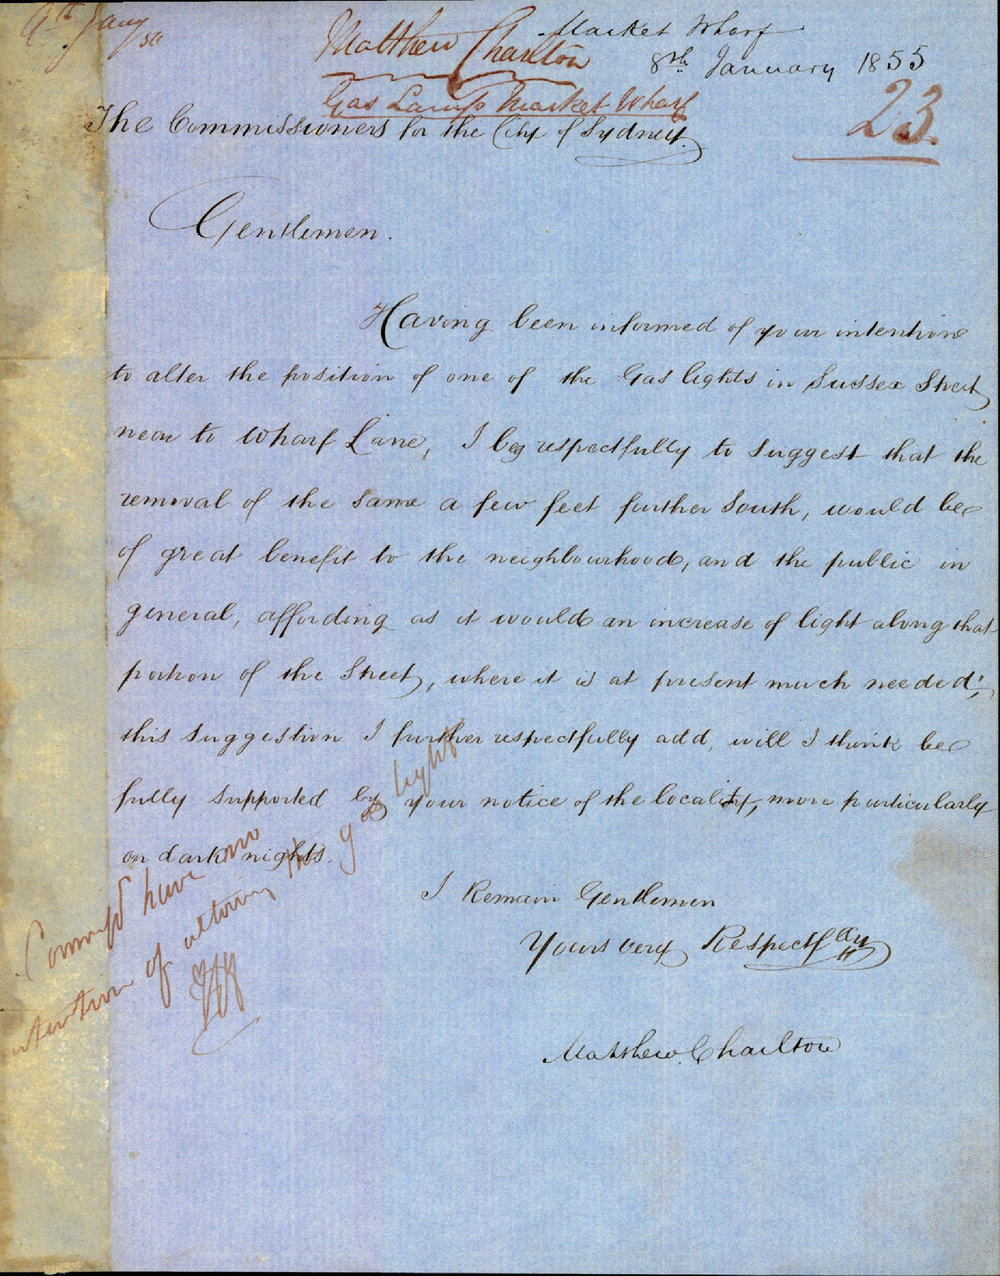 9th Jany
Matthew Charlton
Market Wharf
8th January 1855
Gas Lamps Market Wharf
23.
The Commissioners for the City of Sydney.
Gentlemen.
Having been informed of your intention
to alter the position of one of the Gas lights in Sussex Street
near to Wharf Lane, I beg respectfully to suggest that the
removal of the same a few feet further South, would be
of great benefit to the neighbourhood, and the public in
general, affording as it would an increase of light along that
portion of the Street, where it is at present much needed;
this suggestion I further respectfully add, will I think be
fully supported by your notice of the locality, more particularly
on dark nights.
I Remain Gentlemen
Yours very Respectfully
Matthew Charlton
have no
intention of altering the gas light